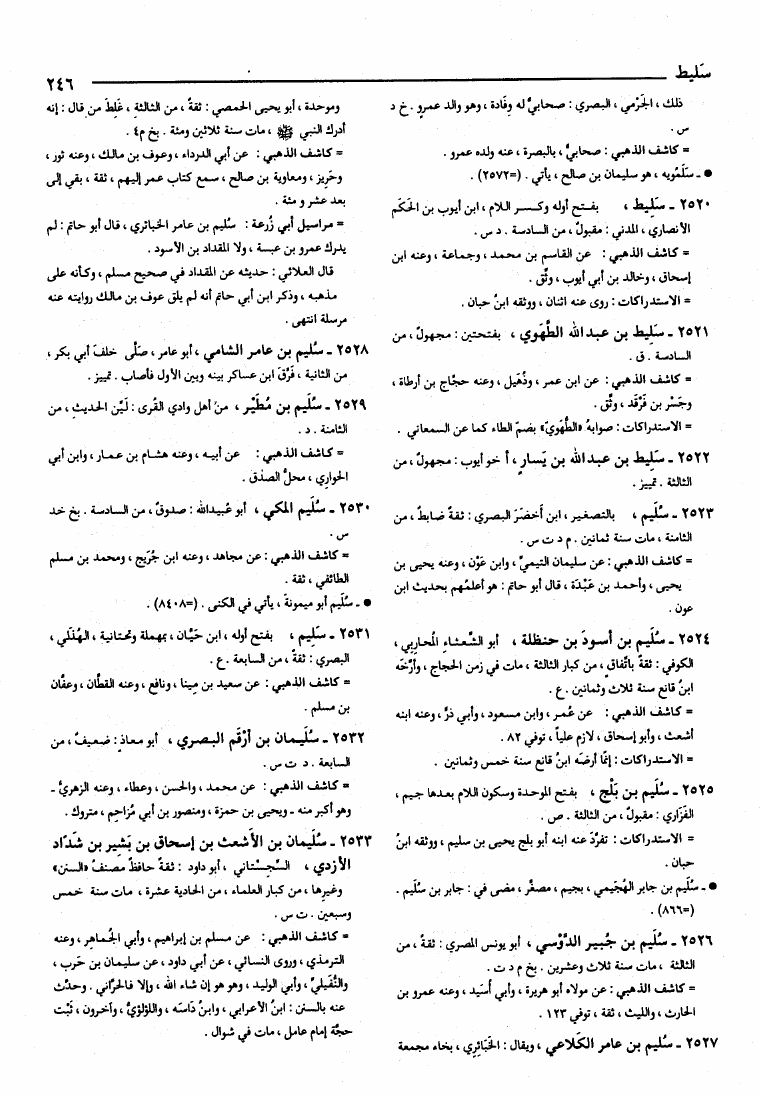 سَليط
٢٤٦
ذلك ، الجَرْمي ، البصري : صحابيٌّ له وِفَادة ، وهو والد عمرو . خ د
س .
= كاشف الذهبي : صحابيٌّ ، بالبصرة ، عنه ولده عمرو .
● ـ سَلَمُويه ، هو سليمان بن صالح ، يأتي . (=٢٥٧٢) .
٢٥٢٠ ـ سَلِيط ، بفتح أوله وكسر اللام ، ابن أيوب بن الحَكَم
الأنصاري ، المدني : مقبولٌ ، من السادسة . د س .
= كاشف الذهبي : عن القاسم بن محمد ، وجماعة ، وعنه ابن
إسحاق ، وخالد بن أبي أيوب ، وثِّق .
= الاستدراكات : روى عنه اثنان ، ووثقه ابنُ حبان .
٢٥٢١ ـ سَلِيط بن عبدالله الطَّهَوي ، بفتحتين : مجهولٌ ، من
السادسة . ق .
= كاشف الذهبي : عن ابن عمر ، وذُهَيل ، وعنه حجّاج بن أرطاة ،
وجَسْر بن فَرْقَد ، وثِّق .
= الاستدراكات : صوابهُ «الطُّهَويّ» بضمّ الطاء كما عن السمعاني .
٢٥٢٢ ـ سَلِيط بن عبد الله بن يَسار ، أخو أيوب : مجهولٌ ، من
الثالثة . تمييز .
٢٥٢٣ ـ سُلَيم ، بالتصغير ، ابن أَخضَرَ البصري : ثقةٌ ضابطٌ ، من
الثامنة ، مات سنة ثمانين . م د ت س .
= كاشف الذهبي : عن سليمان التيميِّ ، وابن عَوْن ، وعنه يحيى بن
يحيى ، وأحمد بن عَبْدَة ، قال أبو حاتم : هو أعلمُهم بحديث ابن
عون .
٢٥٢٤ ـ سُلَيم بن أسودَ بن حنظلة ، أبو الشَّعثاءِ المُحاربي ،
الكوفي : ثقةٌ باتِّفاقٍ ، من كبار الثالثة ، مات في زمن الحجاج ، وأرَّخه
ابنُ قانع سنة ثلاث وثمانين . ع .
= كاشف الذهبي : عن عُمر ، وابن مسعود ، وأبي ذرٍّ ، وعنه ابنه
أشعث ، وأبو إسحاق ، لازم علياً ، توفي ٨٢ .
= الاستدراكات : إنما أرخه ابنُ قانع سنة خمس وثمانين .
٢٥٢٥ ـ سُليم بن بَلْج ، بفتح الموحدة وسكون اللام بعدها جيم ،
الفَزَاري : مقبولٌ ، من الثالثة . ص .
= الاستدراكات : تفرَّد عنه ابنه أبو بلج يحيى بن سليم ، ووثقه ابنُ
حبان .
● ـ سُليم بن جابر الهُجَيمي ، بجيم ، مصغَّر ، مضى في : جابر بن سُليم .
(=٨٦٦) .
٢٥٢٦ ـ سُليم بن جُبير الدَّوْسي ، أبو يونس المصري : ثقةٌ ، من
الثالثة ، مات سنة ثلاث وعشرين . بخ م د ت .
= كاشف الذهبي : عن مولاه أبو هريرة ، وأبي أُسَيد ، وعنه عمرو بن
الحارث ، والليث ، ثقة ، توفي ١٢٣ .
٢٥٢٧ ـ سُليم بن عامر الكَلاعي ، ويقال : الخَبَائِري ، بخاء مجمعة
وموحدة ، أبو يحيى الحمصي : ثقةٌ ، من الثالثةِ ، غَلِطَ من قال : إنه
أدرك النبي ﷺ ، مات سنة ثلاثين ومئة . بخ م ٤ .
= كاشف الذهبي : عن أبي الدرداء ، وعوف بن مالك ، وعنه ثور ،
وحَرِيز ، ومعاوية بن صالح ، سمع كتاب عمر إليهم ، ثقة ، بقي إلى
بعد عشر و مئة .
= مراسيل أبي زُرعة : سُليم بن عامر الخَبائري ، قال أبو حاتم : لم
يدرك عمرو بن عبسة ، ولا المقداد بن الأسود .
قال العلائي : حديثه عن المقداد في صحيح مسلم ، وكأنه على
مذهبه ، وذكر ابن أبي حاتم أنه لم يلق عوف بن مالك روايته عنه
مرسلة انتهى .
٢٥٢٨ ـ سُليم بن عامر الشامي ، أبو عامر ، صَلَّى خلفَ أبي بكر ،
من الثانية ، فَرَّقَ ابن عساكر بينه وبين الأول فأصاب . تمييز .
٢٥٢٩ ـ سُليم بن مُطَيْر ، من أهل وادي القُرى : لَيِّن الحديثِ ، من
الثامنة . د .
= كاشف الذهبي : عن أبيه ، وعنه هشام بن عمار ، وابن أبي
الحواري ، محلُّ الصدْق .
٢٥٣٠ ـ سُلَيم المكي ، أبو عُبيدالله : صدوقٌ ، من السادسة . بخ خد
س .
= كاشف الذهبي : عن مجاهد ، وعنه ابن جُرَيج ، ومحمد بن مسلم
الطائفي ، ثقة .
● ـ سُلَيم أبو ميمونةَ ، يأتي في الكنى . (=٨٤٠٨) .
٢٥٣١ ـ سَلِيم ، بفتح أوله ، ابن حَيَّان ، بمهملة وتحتانية ، الهُذَلي ،
البصري : ثقةٌ ، من السابعة . ع .
= كاشف الذهبي : عن سعيد بن مِينا ، ونافع ، وعنه القطَّان ، وعفَّان
بن مسلم .
٢٥٣٢ ـ سُلَيمان بن أَرْقَم البصري ، أبو معاذٍ : ضعيفٌ ، من
السابعة . د ت س .
= كاشف الذهبي : عن محمد ، والحسن ، وعطاء ، وعنه الزهريُّ ـ
وهو أكبر منه ـ ويحيى بن حمزة ، ومنصور بن أبي مُزاحِم ، متروك .
٢٥٣٣ ـ سُلَيمان بن الأشعث بن إسحاق بن بَشِير بن شَدَّاد
الأزدي ، السِّجِستاني ، أبو داود : ثقةٌ حافظٌ مصنفُ «السنن»
وغيرِها ، من كبار العلماء ، من الحادية عشرة ، مات سنة خمس
وسبعين . ت س .
= كاشف الذهبي : عن مسلم بن إبراهيم ، وأبي الجُماهر ، وعنه
الترمذي ، وروى النسائي ، عن أبي داود ، عن سليمان بن حَرب ،
والنُّفَيليِّ ، وأبي الوليد ، وهو هو إن شاء الله ، وإلا فالحرَّاني . وحدَّث
عنه بالسنن : ابنُ الأعرابي ، وابنُ دَاسَه ، واللؤلؤيُّ ، وآخرون ، ثَبْت
حجَّة إمام عامل ، مات في شوال .